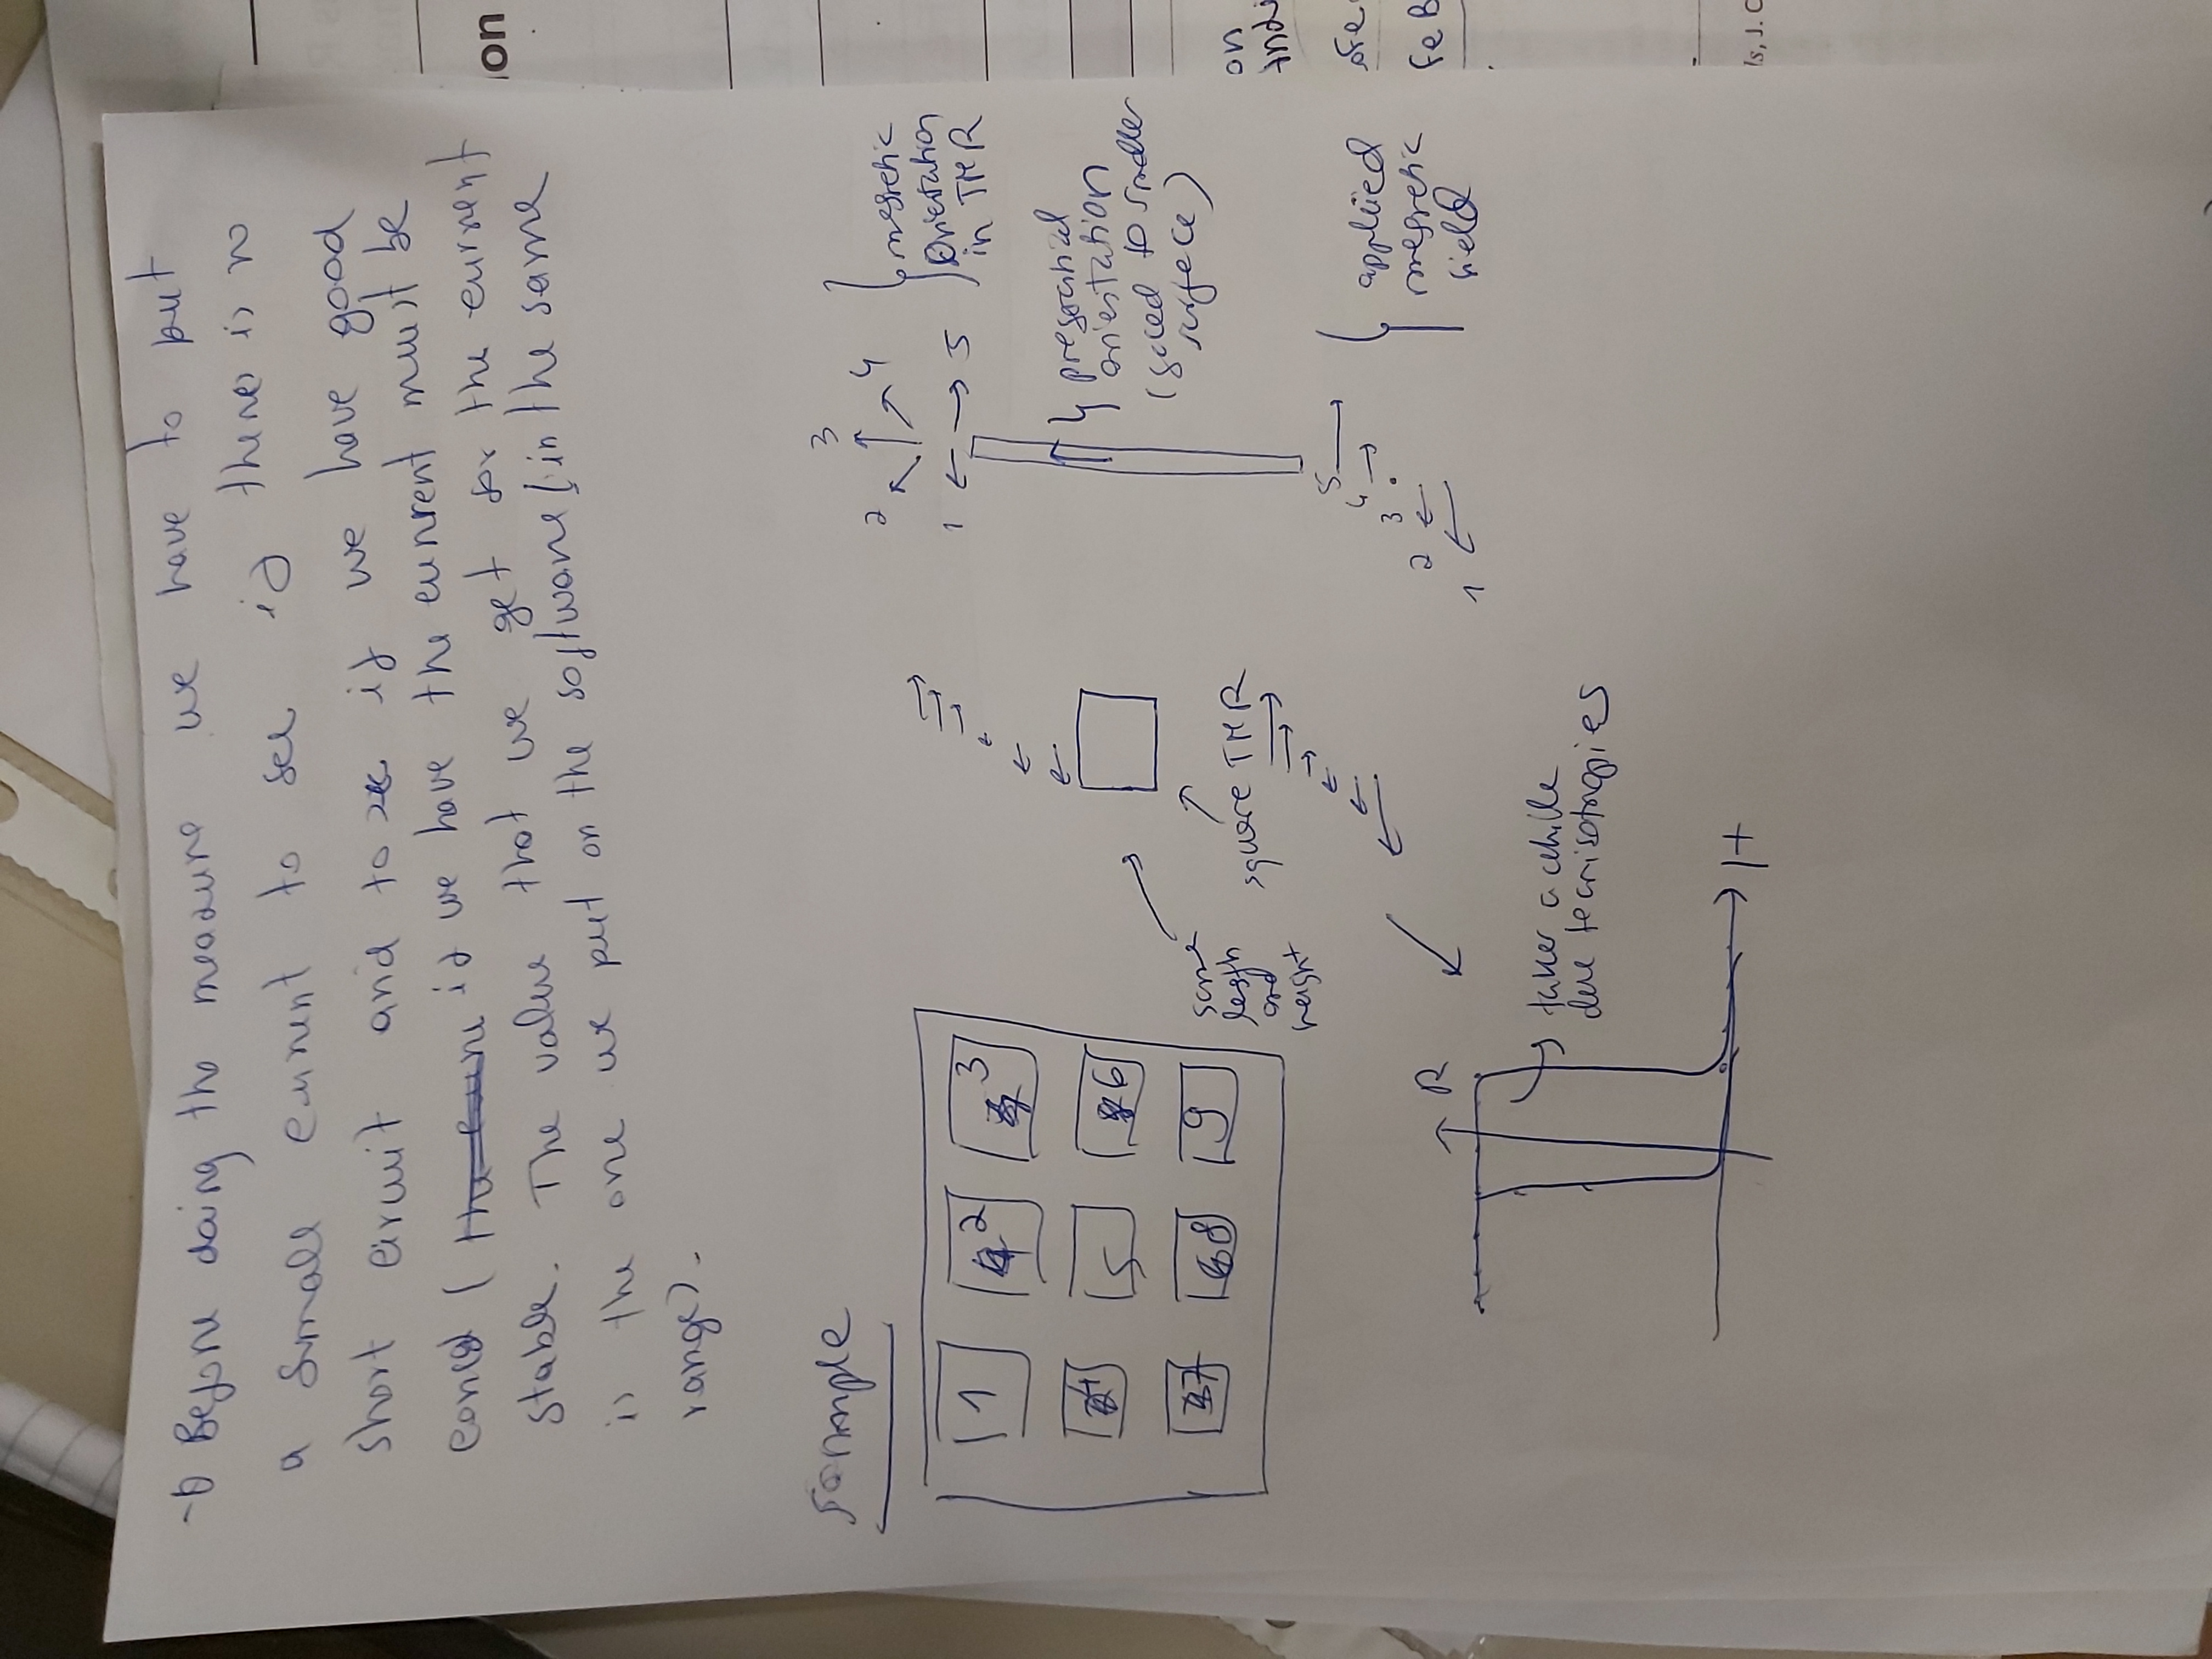 Before doing the measure we have to put
a small current to see if there is no
short circuit and to see if we have good
(the if we have the current must be
stable. The value that we get for the current
is the one we put on the software (in the same
range).
sample
1 2 3
4 5 6
7 8 9
same
length
and
height
square TMR
3
2 4
1 5
magnetic
Orientation
in TMR
preferential
orientation
(faced to smaller
surface)
5
4
3
2
1
applied
magnetic
field
R
takes a while
due to anisotropies
H
on
on
FeB
ls, J. C